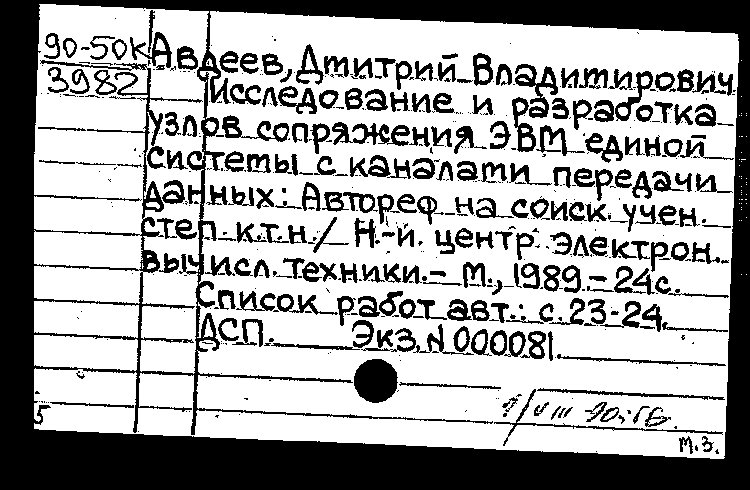 90-50к
3982
Авдеев, Дмитрий Владимирович
Исследование и разработка
узлов сопряжения ЭВМ единой
системы с каналами передачи
данных: Автореф на соиск. учен.
степ. к.т.н./ Н.-и. центр электрон.
вычисл. техники.- М., 1989.- 24с.
Список работ авт.: с. 23-24.
ДСП. Экз. N 000081.
VIII
5
м.з.